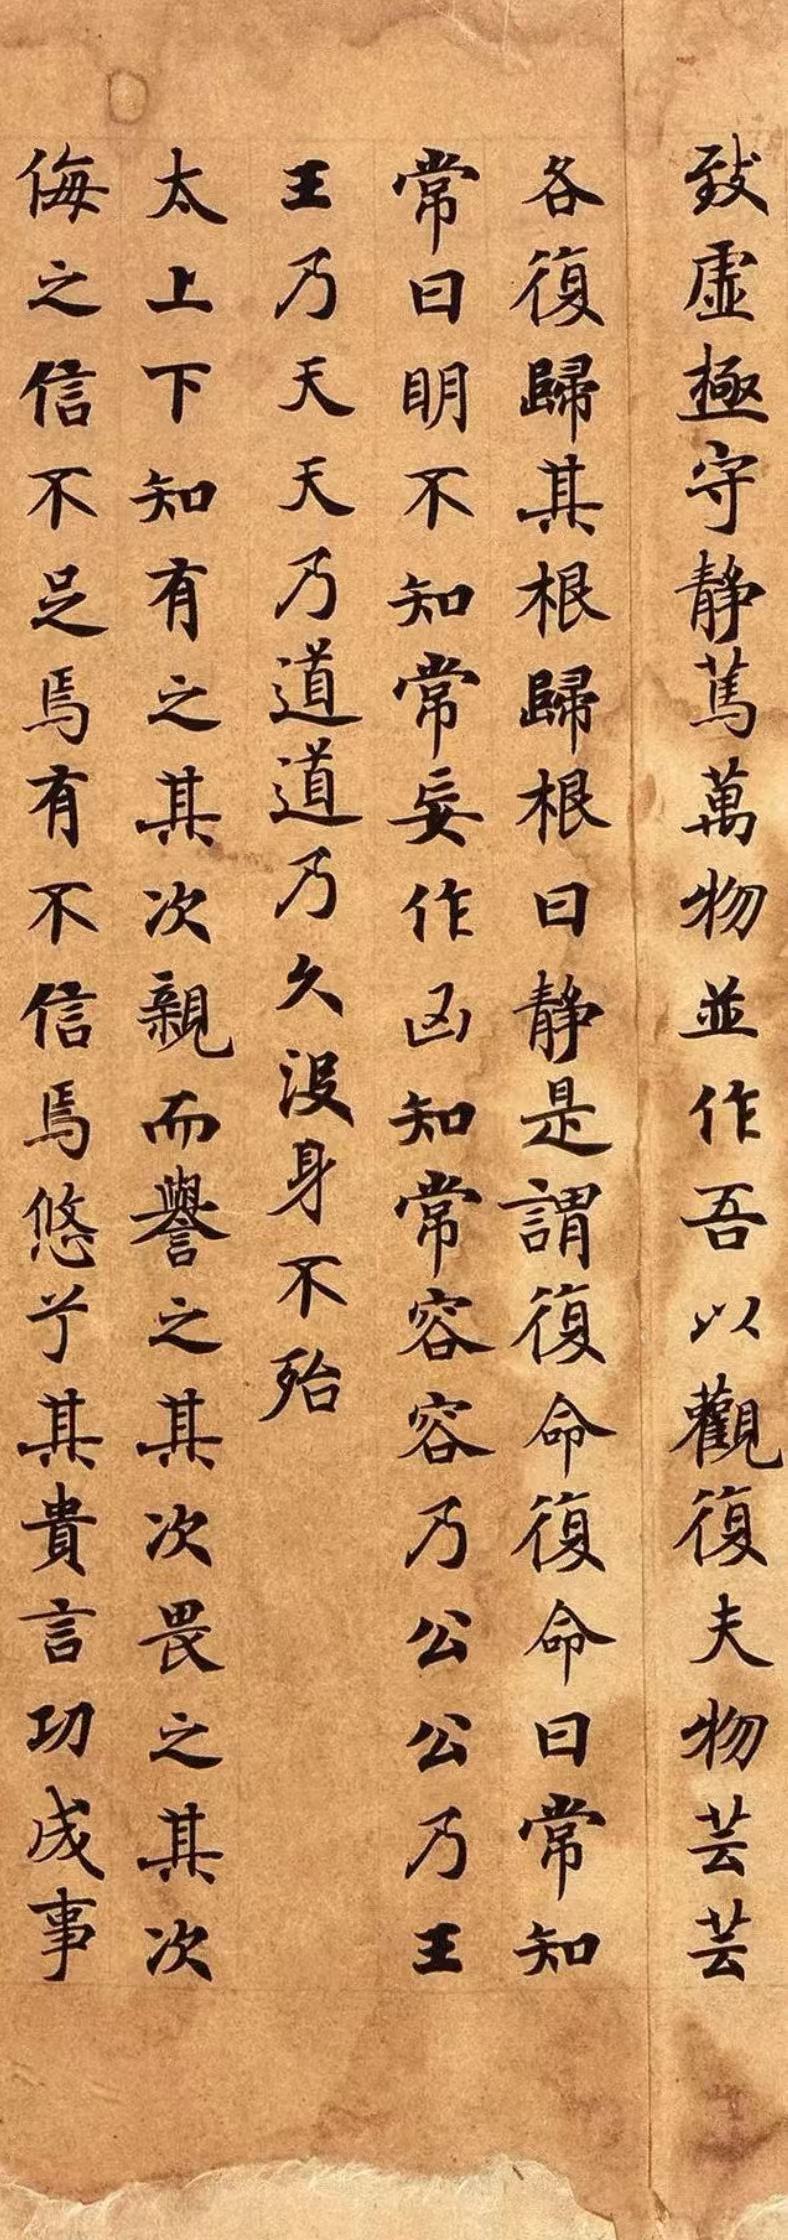 致虛極守靜篤萬物並作吾以觀復夫物芸芸
各復歸其根歸根曰靜是謂復命復命曰常知
常曰明不知常妄作凶知常容容乃公公乃王
王乃天天乃道道乃久沒身不殆
太上下知有之其次親而譽之其次畏之其次
侮之信不足焉有不信焉悠兮其貴言功成事